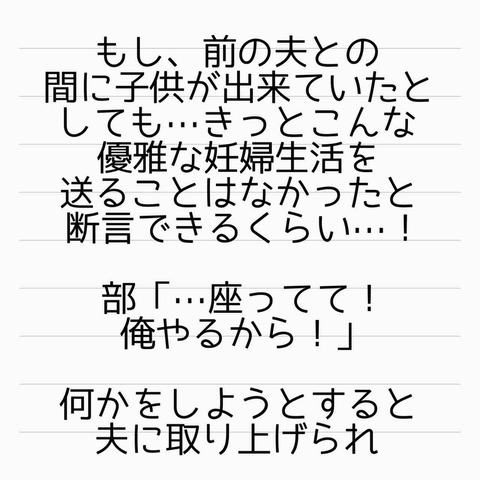 もし、前の夫との
間に子供が出来ていたと
しても…きっとこんな
優雅な妊婦生活を
送ることはなかったと
断言できるくらい…！
部「…座ってて！
俺やるから！」
何かをしようとすると
夫に取り上げられ